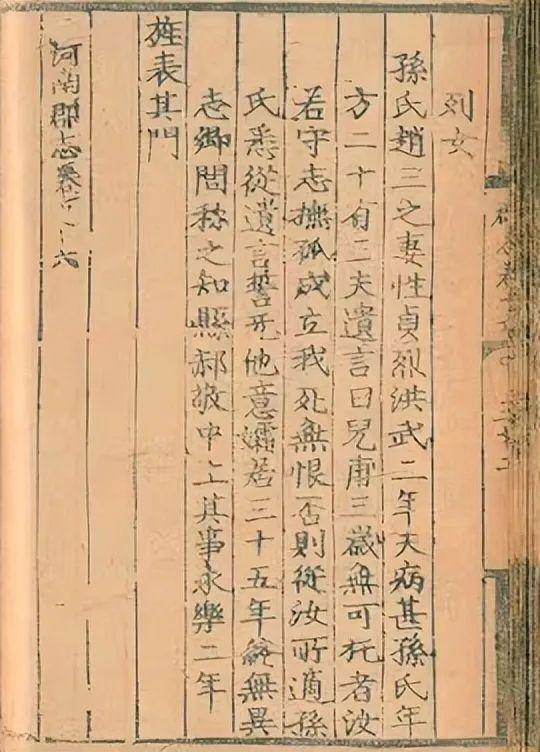 列女
孫氏趙三之妻性貞烈洪武二年夫病甚孫氏年
方二十有二夫遺言曰兒甫三歲無可托者汝
若守志撫孤成立我死無恨否則從汝所適孫
氏悉從遺言誓死他意孀居三十五年終無異
志鄉閭稱之知縣郝敬中上其事永樂二年
旌表其門
河南郡志卷之十六